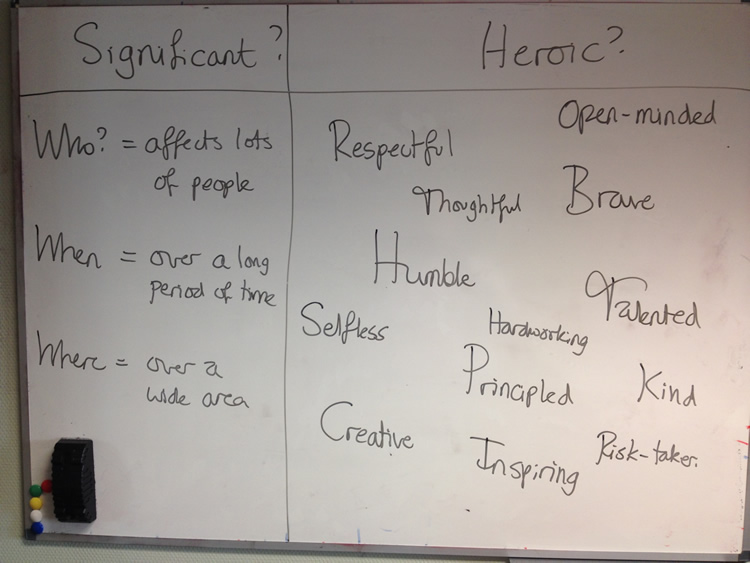 Significant?
Who? = affects lots
of people
When = over a long
period of time
Where = over a
wide area
Heroic?
Open-minded
Respectful
Thoughtful
Brave
Humble
Talented
Selfless
Hardworking
Principled
Kind
Creative
Inspiring
Risk-taker.